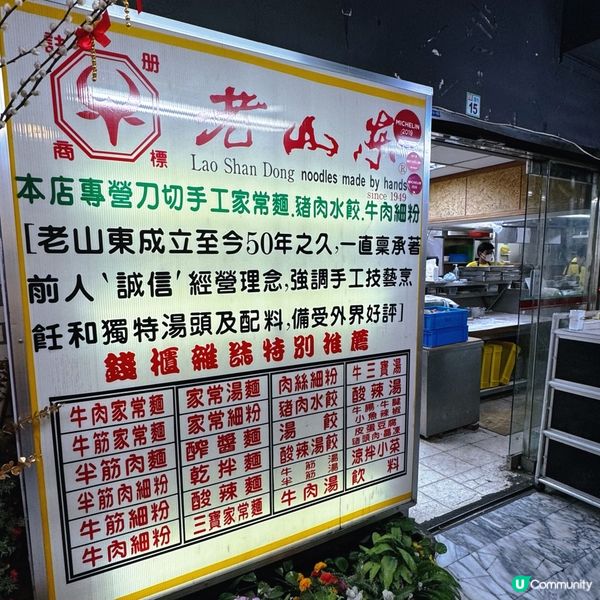 註 册
商 標
老山东®
Lao Shan Dong noodles made by hands
since 1949
MICHELIN
2019
MICHELIN
15
本店專營刀切手工家常麵.豬肉水餃.牛肉細粉
[老山東成立至今50年之久,一直稟承著
前人‵誠信′經營理念,強調手工技藝烹
飪和獨特湯頭及配料,備受外界好評]
錢櫃雜誌特別推薦
牛肉家常麵
牛筋家常麵
半筋肉麵
半筋肉細粉
牛筋細粉
牛肉細粉
家常湯麵
家常細粉
醡醬麵
乾拌麵
酸辣麵
三寶家常麵
肉絲細粉
豬肉水餃
湯餃
酸辣湯餃
牛筋湯
半筋湯
牛肉湯
牛三寶湯
酸辣湯
牛腸.牛腱
小魚辣椒
皮蛋豆腐
豬頭肉.晶凍
涼拌小菜
飲料
U Community